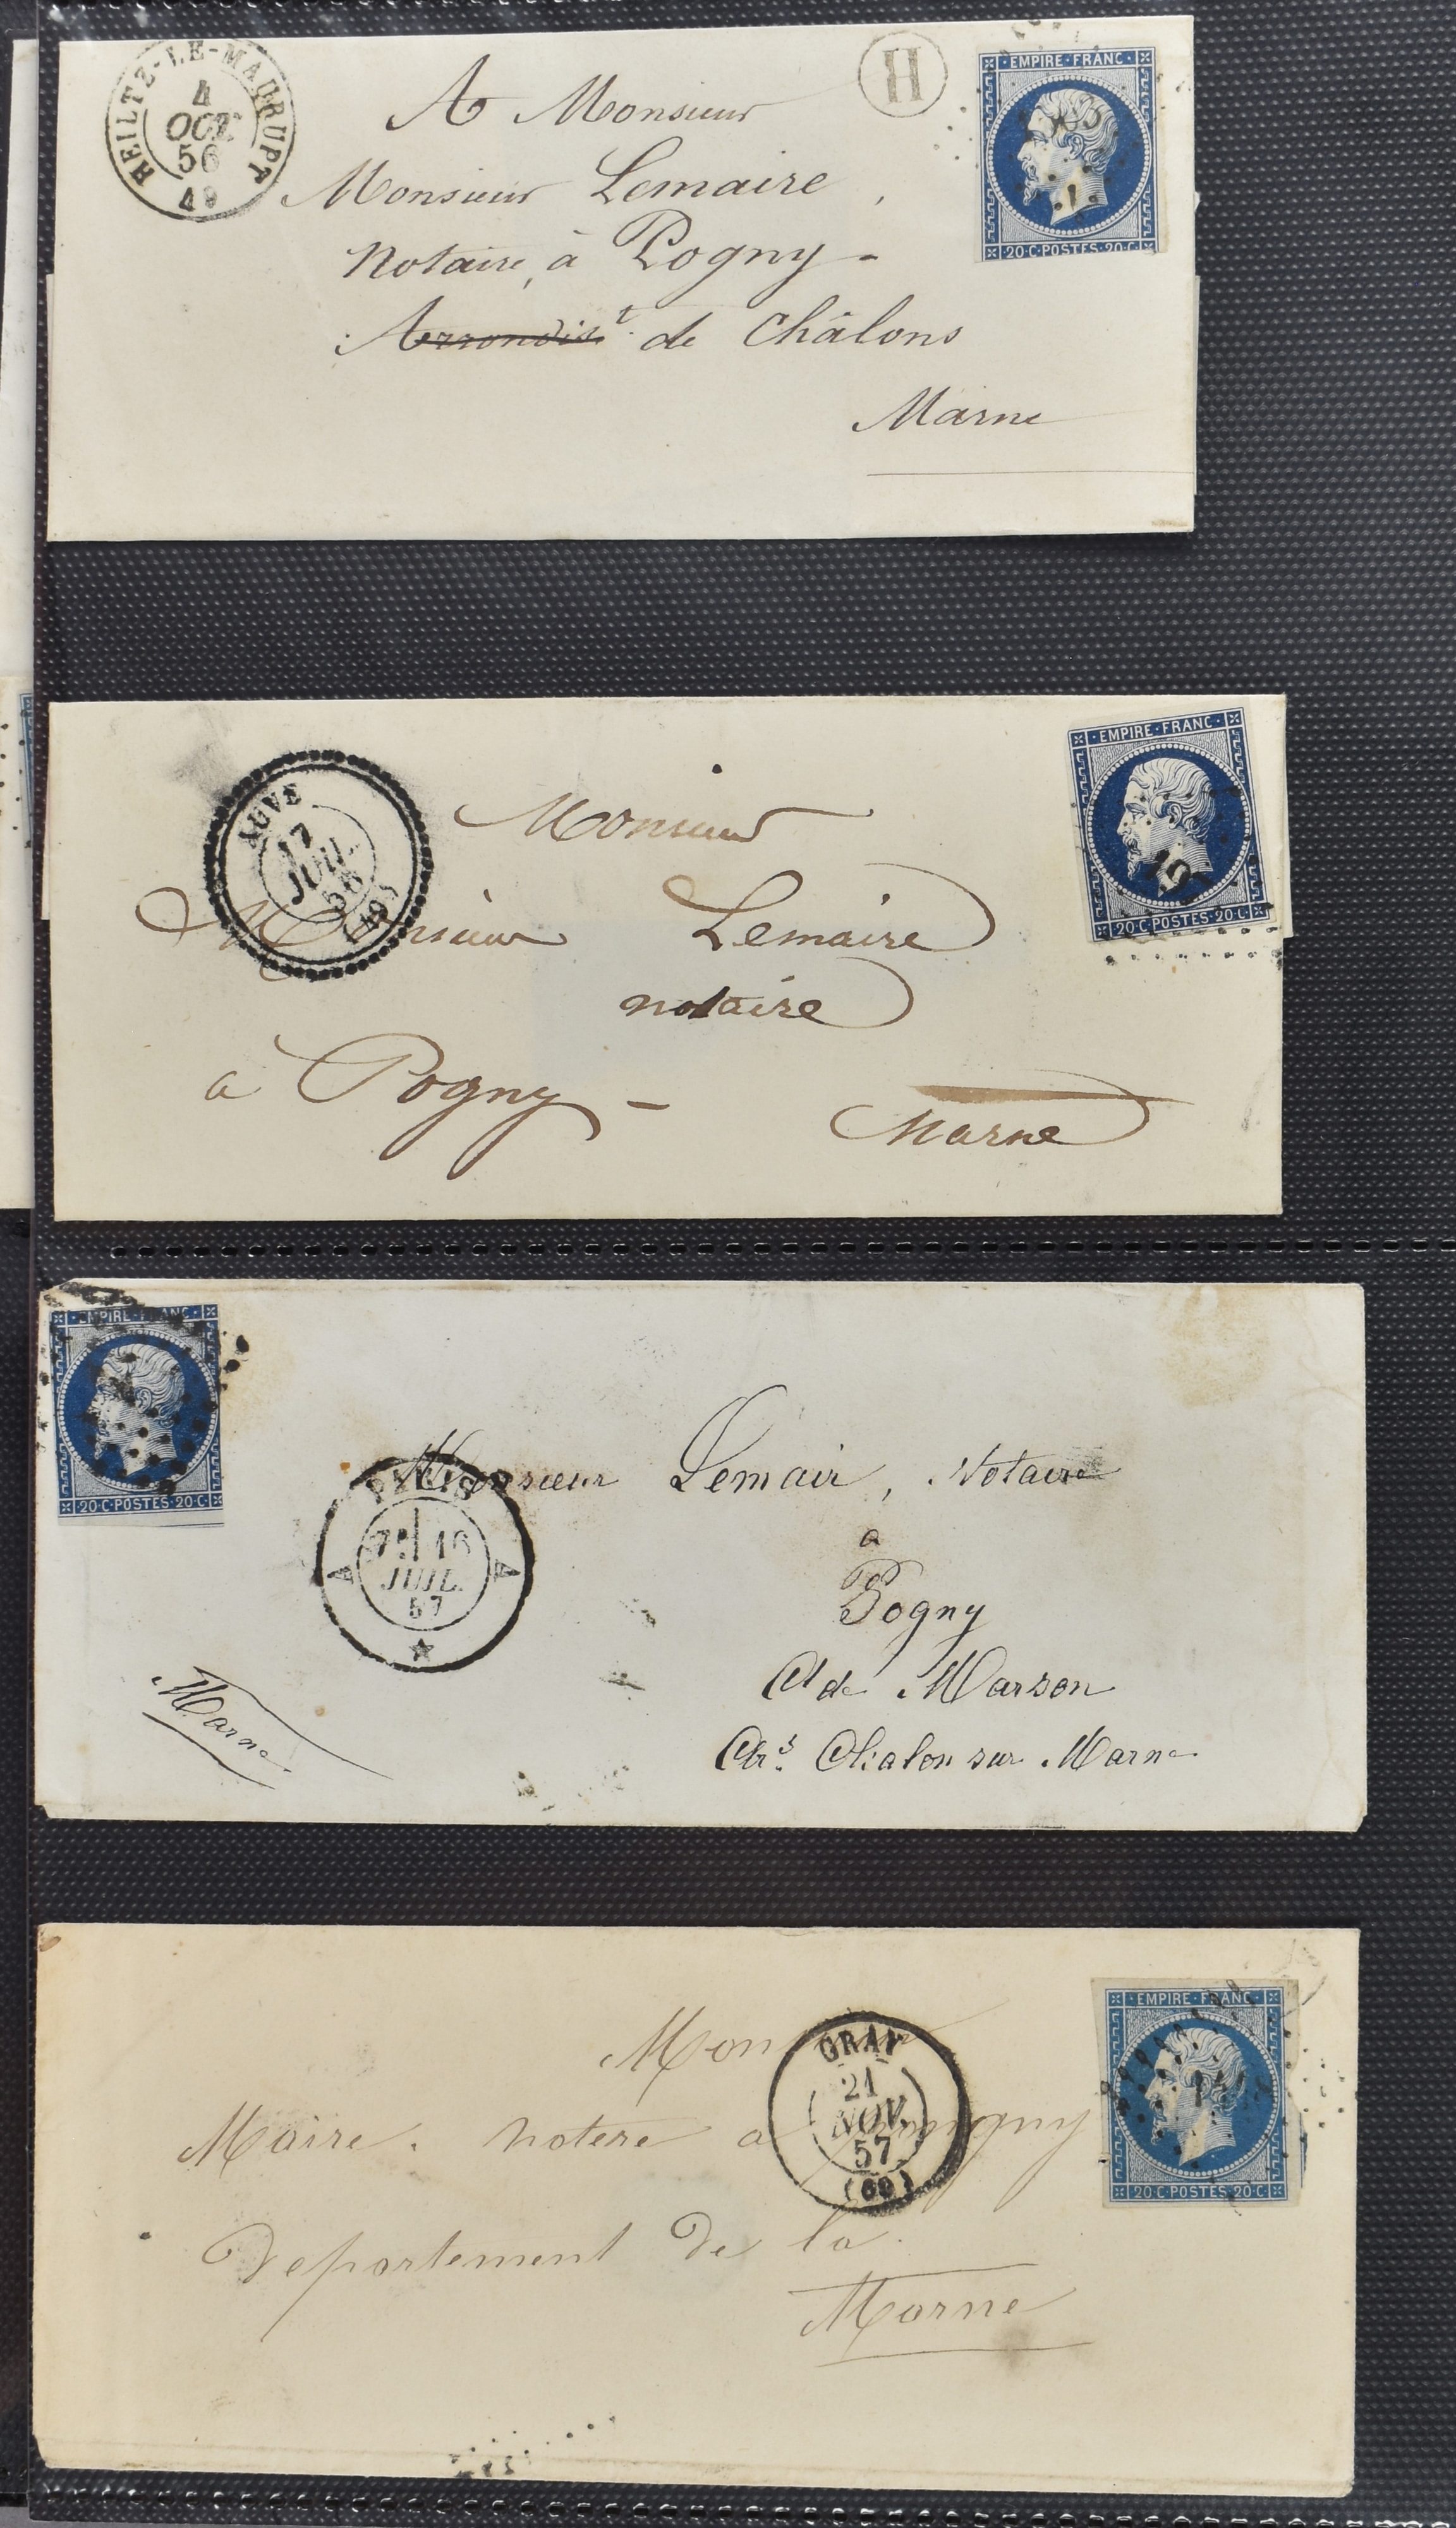 HEILTZ-LE-MAURUPT
4
OCT.
56
49
H
EMPIRE·FRANC
20·C·POSTES·20·C
A Monsieur
Monsieur Lemaire,
Notaire, à Pogny -
Arrondist. de Châlons
Marne
AUVE
17
JUIL.
56
(49)
EMPIRE·FRANC
19
20·C·POSTES·20·C
Monsieur
Monsieur Lemaire
notaire
à Pogny -
Marne
EMPIRE·FRANC
20·C·POSTES·20·C
PARIS
JUIL.
57
A A
Monsieur Lemair, Notaire
a
Pogny
Ct de Marson
Chalon sur Marne
Marne
GRAY
21
NOV.
57
(69)
EMPIRE·FRANC
20·C·POSTES·20·C
Monsieur
Maire. notere a
Departement de la
Marne